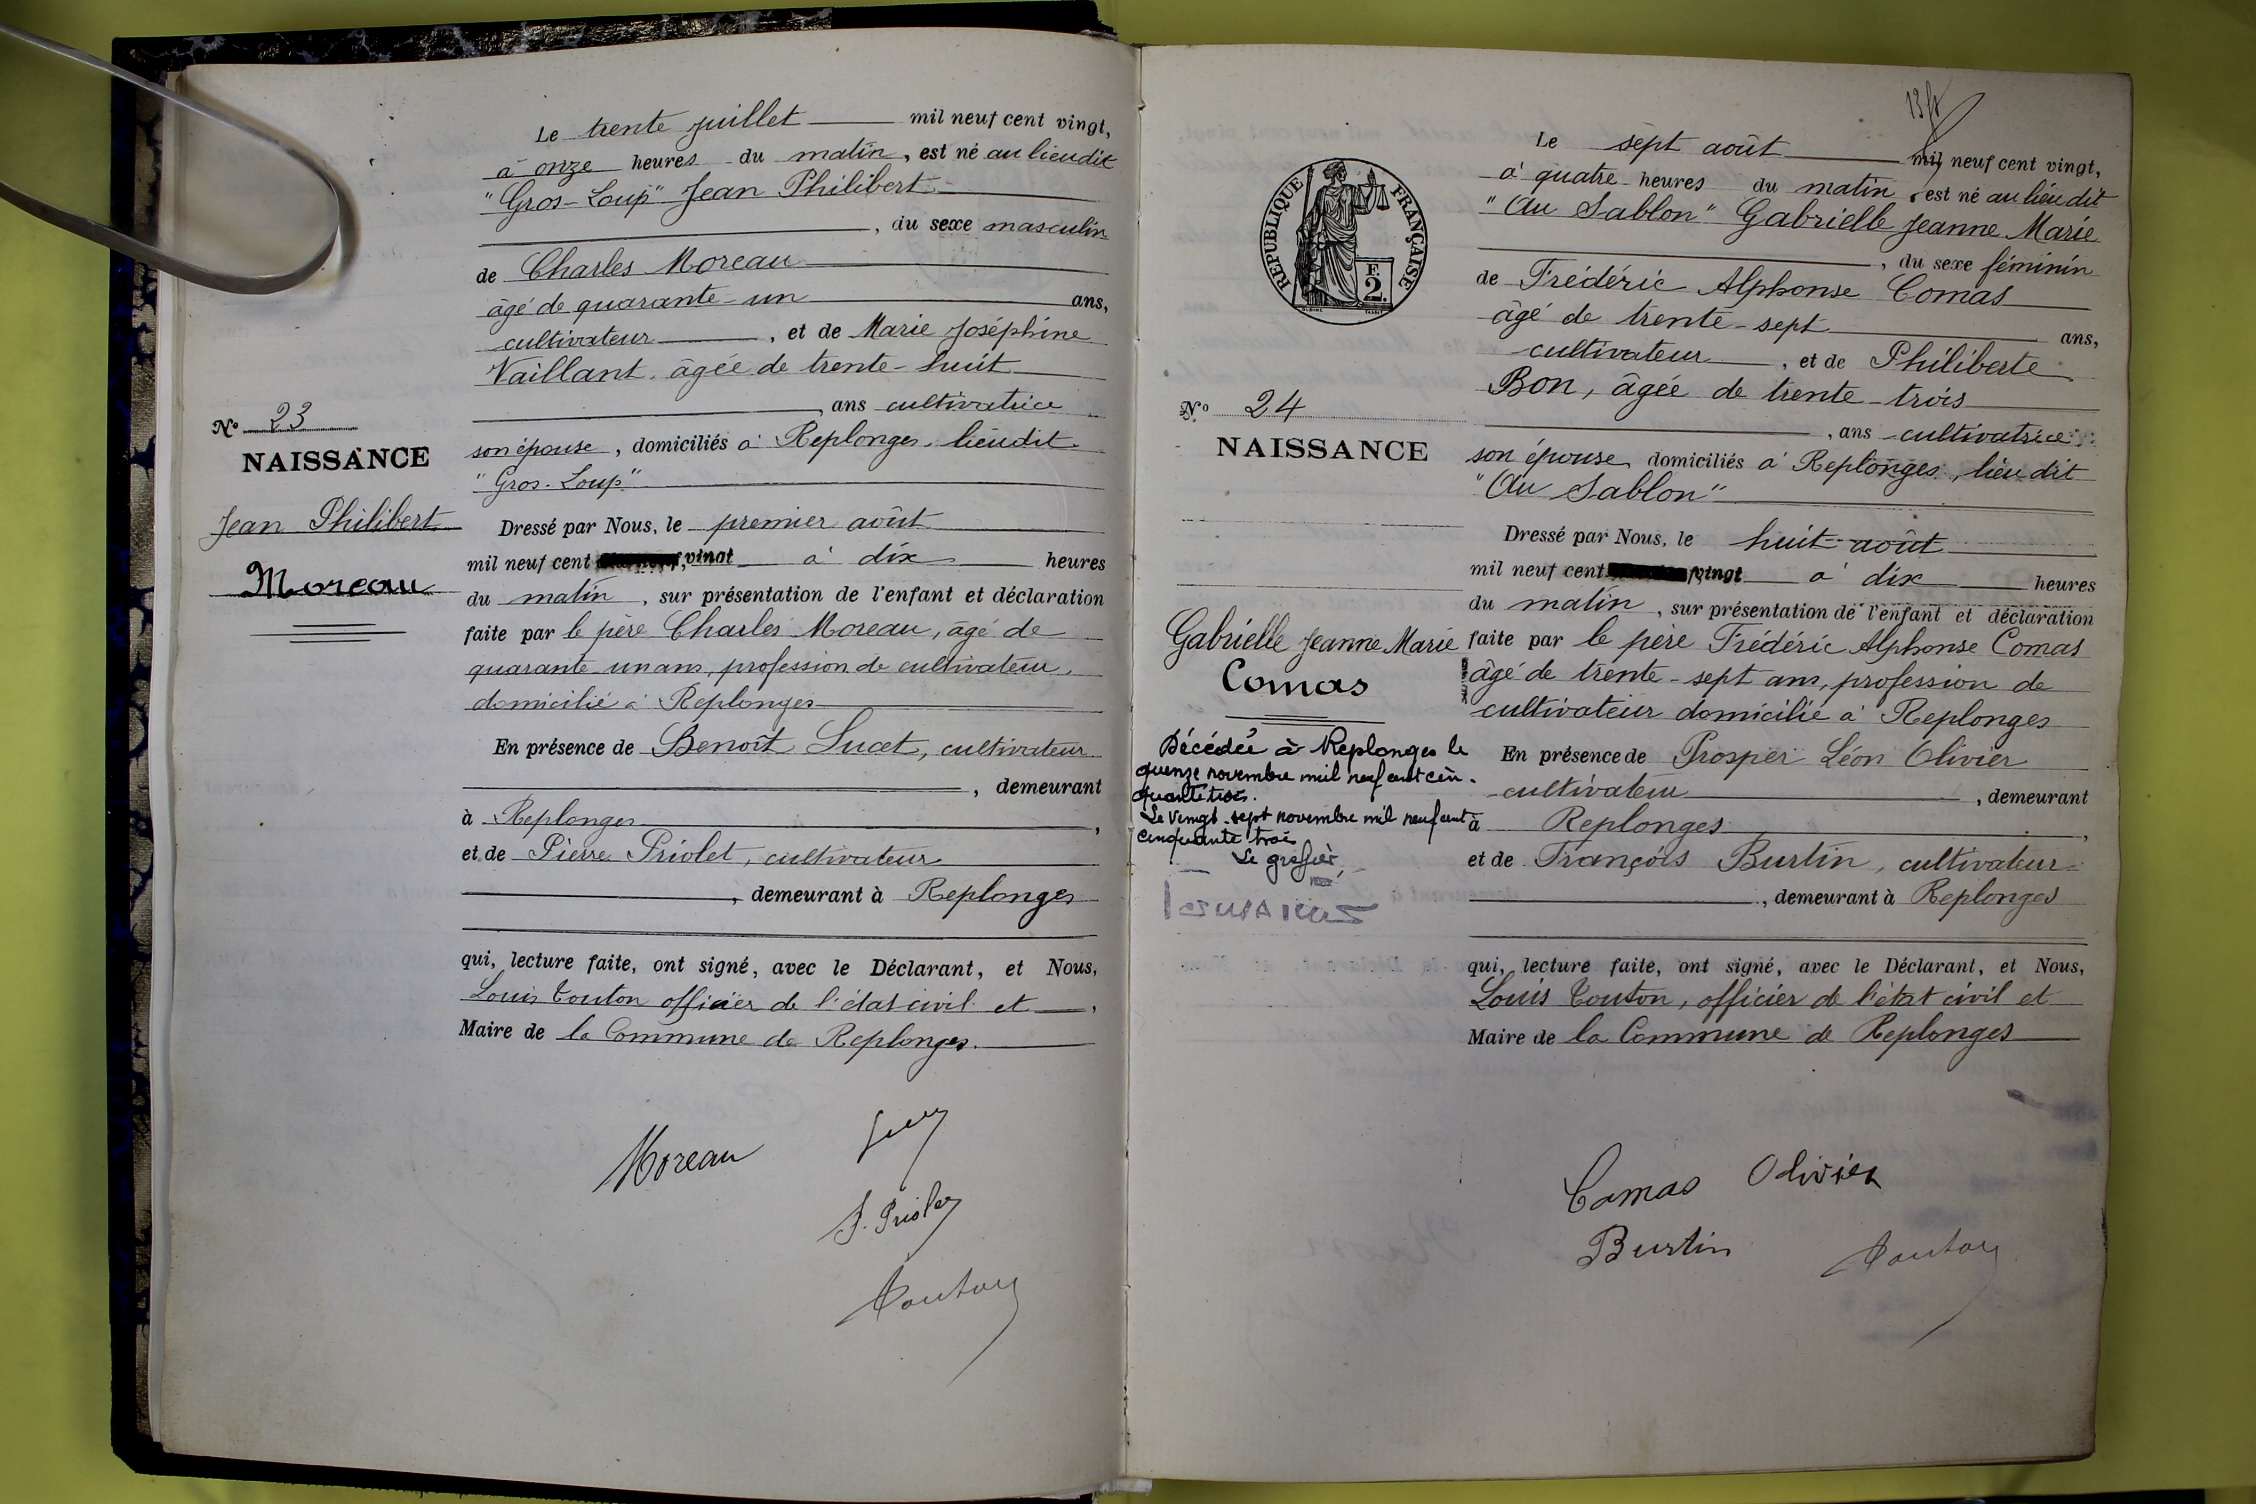 Le trente juillet mil neuf cent vingt,
à onze heures du matin, est né au lieudit
"Gros-Loup" Jean Philibert
, du sexe masculin
de Charles Moreau
âgé de quarante-un ans,
cultivateur, et de Marie Joséphine
Vaillant, âgée de trente-huit
, ans cultivatrice
son épouse, domiciliés à Replonges, lieudit
"Gros-Loup"
N° 23
NAISSANCE
Jean Philibert
Moreau
Dressé par Nous, le premier août
mil neuf cent vingt à dix heures
du matin, sur présentation de l'enfant et déclaration
faite par le père Charles Moreau, âgé de
quarante-un ans, profession de cultivateur,
domicilié à Replonges
En présence de Benoît Lucet, cultivateur
, demeurant
à Replonges,
et de Pierre Priolet, cultivateur
, demeurant à Replonges
qui, lecture faite, ont signé, avec le Déclarant, et Nous,
Louis Touton officier de l'état civil et,
Maire de la Commune de Replonges.
Moreau
Touton
13 ft
Le sept août mil neuf cent vingt,
à quatre heures du matin, est né au lieu dit
"Au Sablon" Gabrielle Jeanne Marie
, du sexe féminin
de Frédéric Alphonse Comas
âgé de trente-sept ans,
cultivateur, et de Philiberte
Bon, âgée de trente-trois
, ans cultivatrice
son épouse domiciliés à Replonges, lieu-dit
"Au Sablon"
RÉPUBLIQUE FRANÇAISE
F.
2.
N° 24
NAISSANCE
Gabrielle Jeanne Marie
Comas
Décédée à Replonges le
quinze novembre mil neuf cent cin-
quante trois.
Le vingt-sept novembre mil neuf cent
cinquante trois
Le greffier,
Dressé par Nous, le huit août
mil neuf cent vingt à dix heures
du matin, sur présentation de l'enfant et déclaration
faite par le père Frédéric Alphonse Comas
âgé de trente-sept ans, profession de
cultivateur domicilié à Replonges
En présence de Prosper Léon Olivier
cultivateur, demeurant
à Replonges,
et de François Burtin, cultivateur
, demeurant à Replonges
qui, lecture faite, ont signé, avec le Déclarant, et Nous,
Louis Touton, officier de l'état civil et
Maire de la Commune de Replonges
Comas Olivier
Burtin Touton